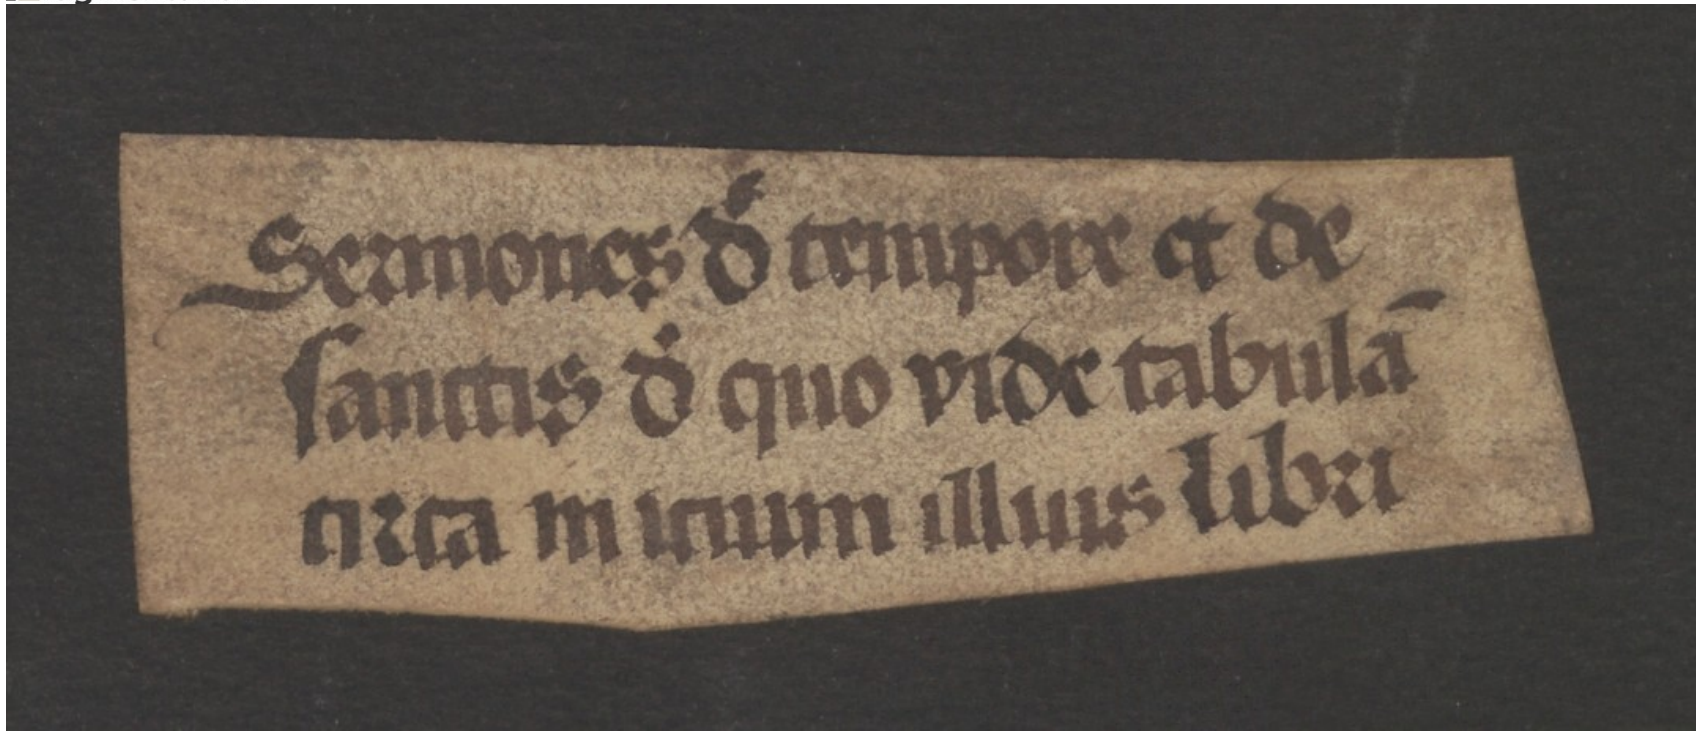 Sermones d̾ tempore et de
sanctis d̾ quo vide tabulā
circa inicium illius libri